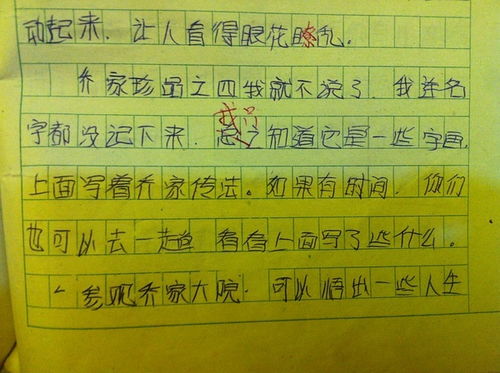 动起来，让人看得眼花瞭乱.
乔家珍品之四我就不说了.我连名
我只
字都没记下来.总之知道它是一些字画,
上面写着乔家传法。如果有时间.你们
也可以去一趟 看看上面写了些什么。
参观乔家大院.可以悟出一些人生